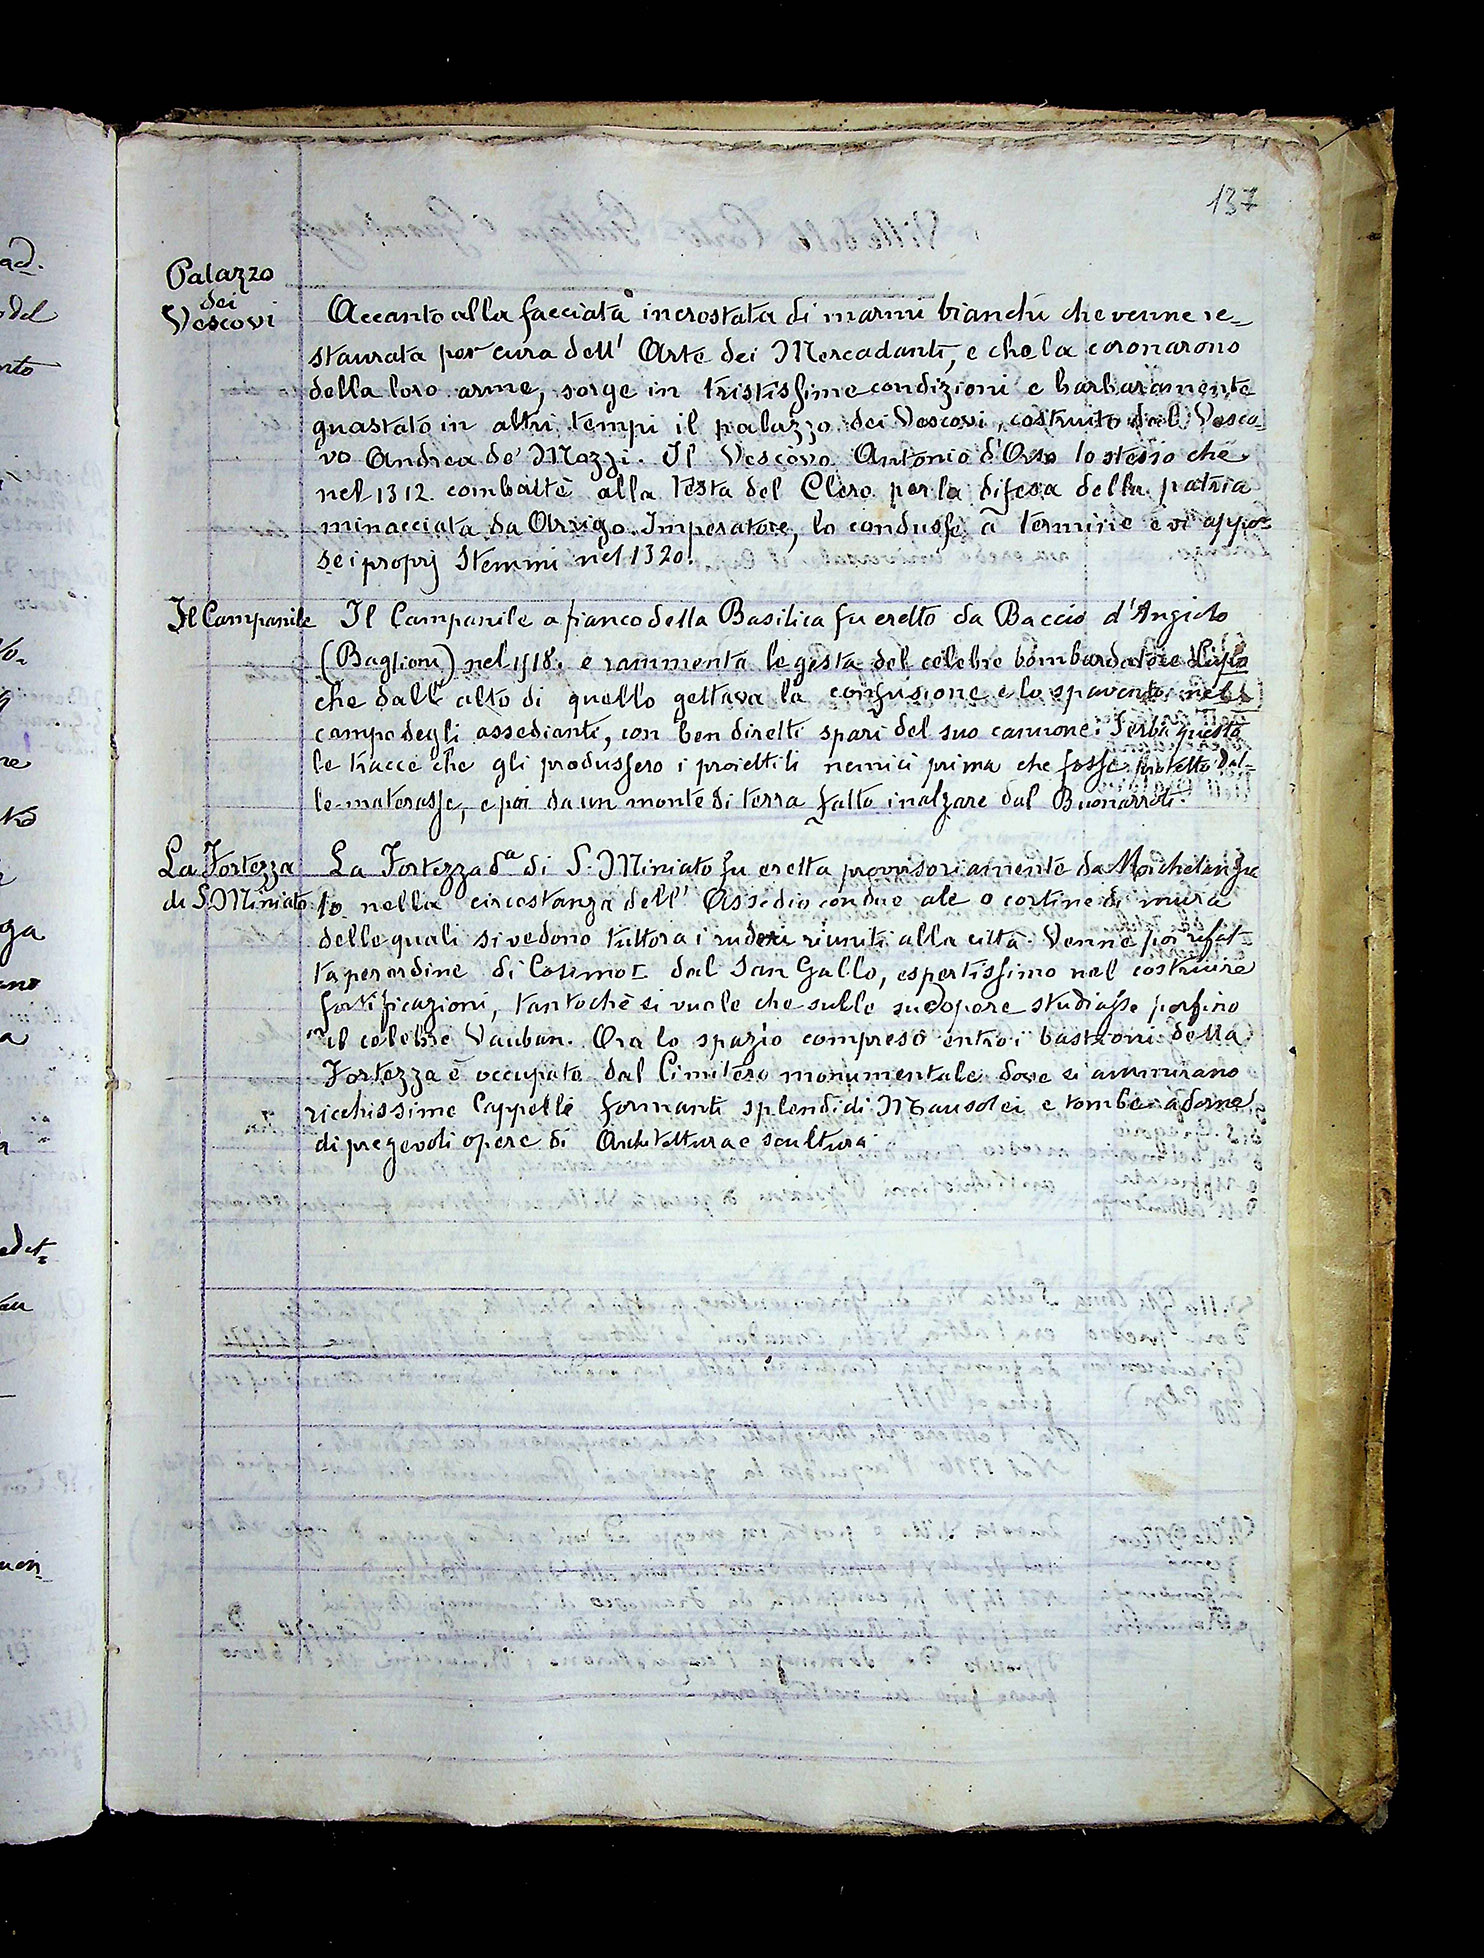 137
Palazzo
dei
Vescovi
Accanto alla facciata incrostata di marmi bianchi che venne re-
staurata per cura dell' Arte dei Mercadanti, e che la coronarono
della loro arme, sorge in tristissime condizioni e barbaramente
guastato in altri tempi il palazzo dei Vescovi, costruito dal Vesco-
vo Andrea de' Mozzi. Il Vescovo Antonio d'Orso lo stesso che
nel 1312 combattè alla testa del Clero per la difesa della patria
minacciata da Arrigo Imperatore, lo condusse a termine e vi appo-
se i proprj stemmi nel 1320.
Il Campanile
Il Campanile a fianco della Basilica fu eretto da Baccio d'Angiolo
(Baglioni) nel 1518. e rammenta le gesta del celebre bombardatore
che dall' alto di quello gettava la confusione e lo spavento nel
campo degli assedianti, con ben diretti spari del suo cannone. Serba questa
le tracce che gli produssero i proiettili nemici prima che fosse protetto dal-
le materasse, e poi da un monte di terra fatto inalzare dal Buonarroti.
La Fortezza
di S. Miniato
La Fortezza da di S. Miniato fu eretta provvisoriamente da Michelangio
lo nella circostanza dell' Assedio con due ale o cortine di mura
delle quali si vedono tuttora i ruderi riuniti alla città. Venne poi rifat
ta per ordine di Cosimo I dal San Gallo, espertissimo nel costruire
fortificazioni, tantochè si vuole che sulle sue opere studiasse perfino
il celebre Vauban. Ora lo spazio compreso entro i bastioni della
Fortezza è occupato dal Cimitero monumentale dove si ammirano
ricchissime Cappelle formanti splendidi Mausolei e tombe adorne
di pregevoli opere di Architettura e scultura.